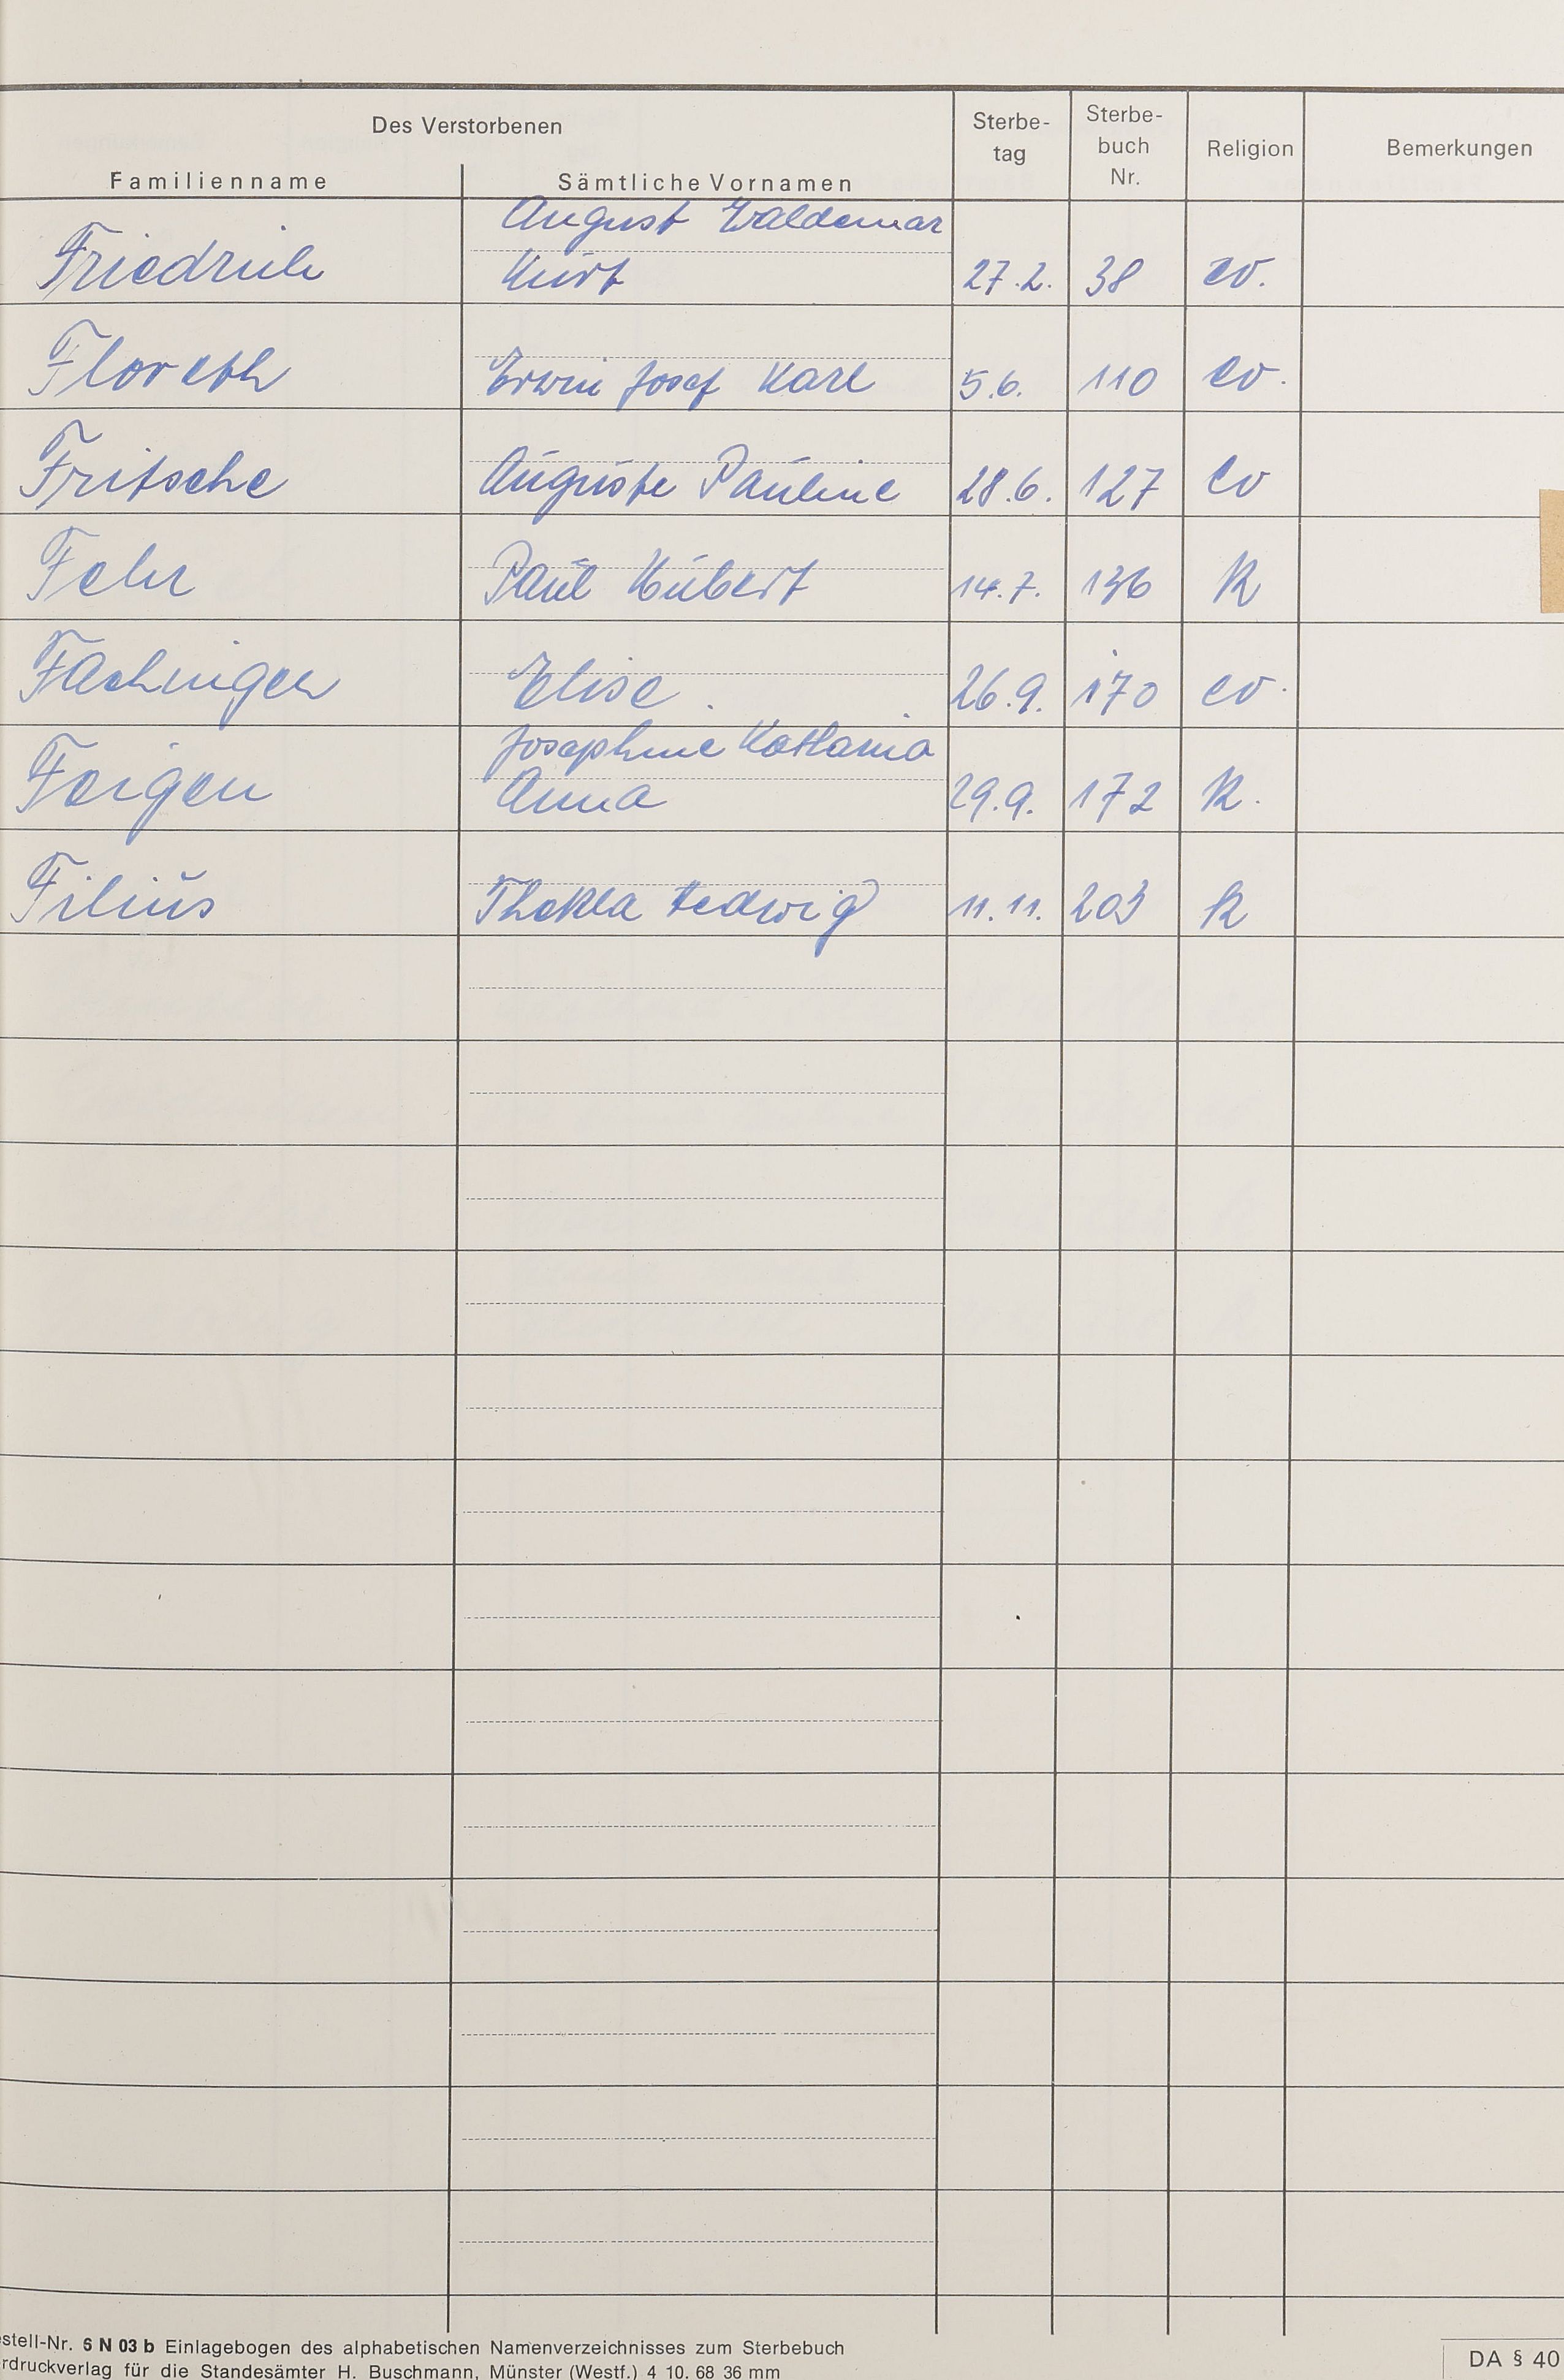 Des Verstorbenen
Familienname
Sämtliche Vornamen
Sterbe-
tag
Sterbe-
buch
Nr.
Religion
Bemerkungen
August Waldemar
Friedrich Kurt 27.2. 38 ev.
Floreth Erwin Josef Karl 5.6. 110 ev.
Fritsche Auguste Pauline 28.6. 127 ev
Fehr Paul Hubert 14.7. 136 K
Fachinger Elise 26.9. 170 ev.
Josephine Katharina
Feigen Anna 29.9. 172 K.
Filius Thekla Hedwig 11.11. 203 K
stell-Nr. 6 N 03 b Einlagebogen des alphabetischen Namenverzeichnisses zum Sterbebuch
rdruckverlag für die Standesämter H. Buschmann, Münster (Westf.) 4 10. 68 36 mm
DA § 40